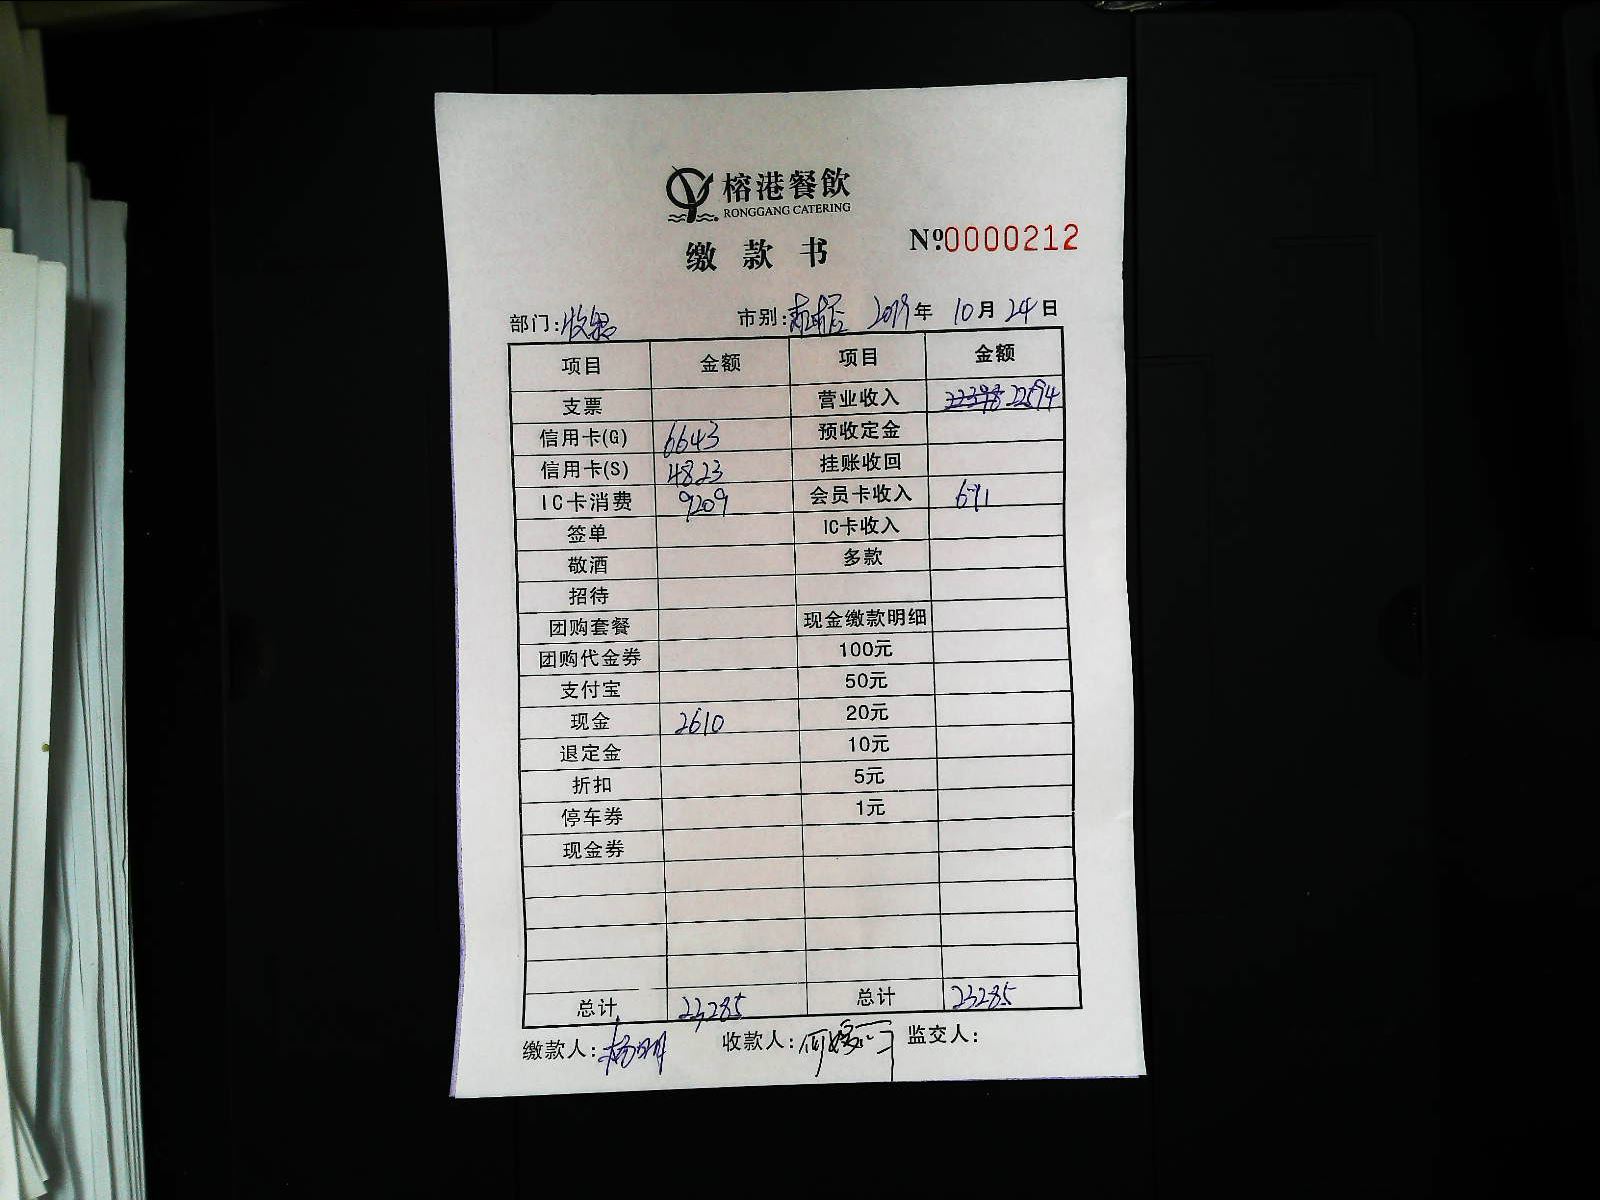 榕港餐飲
RONGGANG CATERING
缴款书 Nº:0000212
部门:收银 市别: 2019年 10月 24日
项目 金额 项目 金额
支票 营业收入 22594
信用卡(G) 6643 预收定金
信用卡(S) 4823 挂账收回
IC卡消费 9209 会员卡收入 691
签单 IC卡收入
敬酒 多款
招待
团购套餐 现金缴款明细
团购代金券 100元
支付宝 50元
现金 2610 20元
退定金 10元
折扣 5元
停车券 1元
现金券
总计 23285 总计 23285
缴款人: 收款人: 监交人: